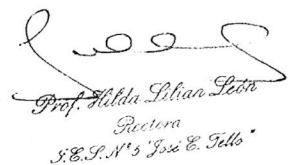 Prof. Hilda Lilian León
Rectora
I.E.S. Nº 5 "José E. Tello"